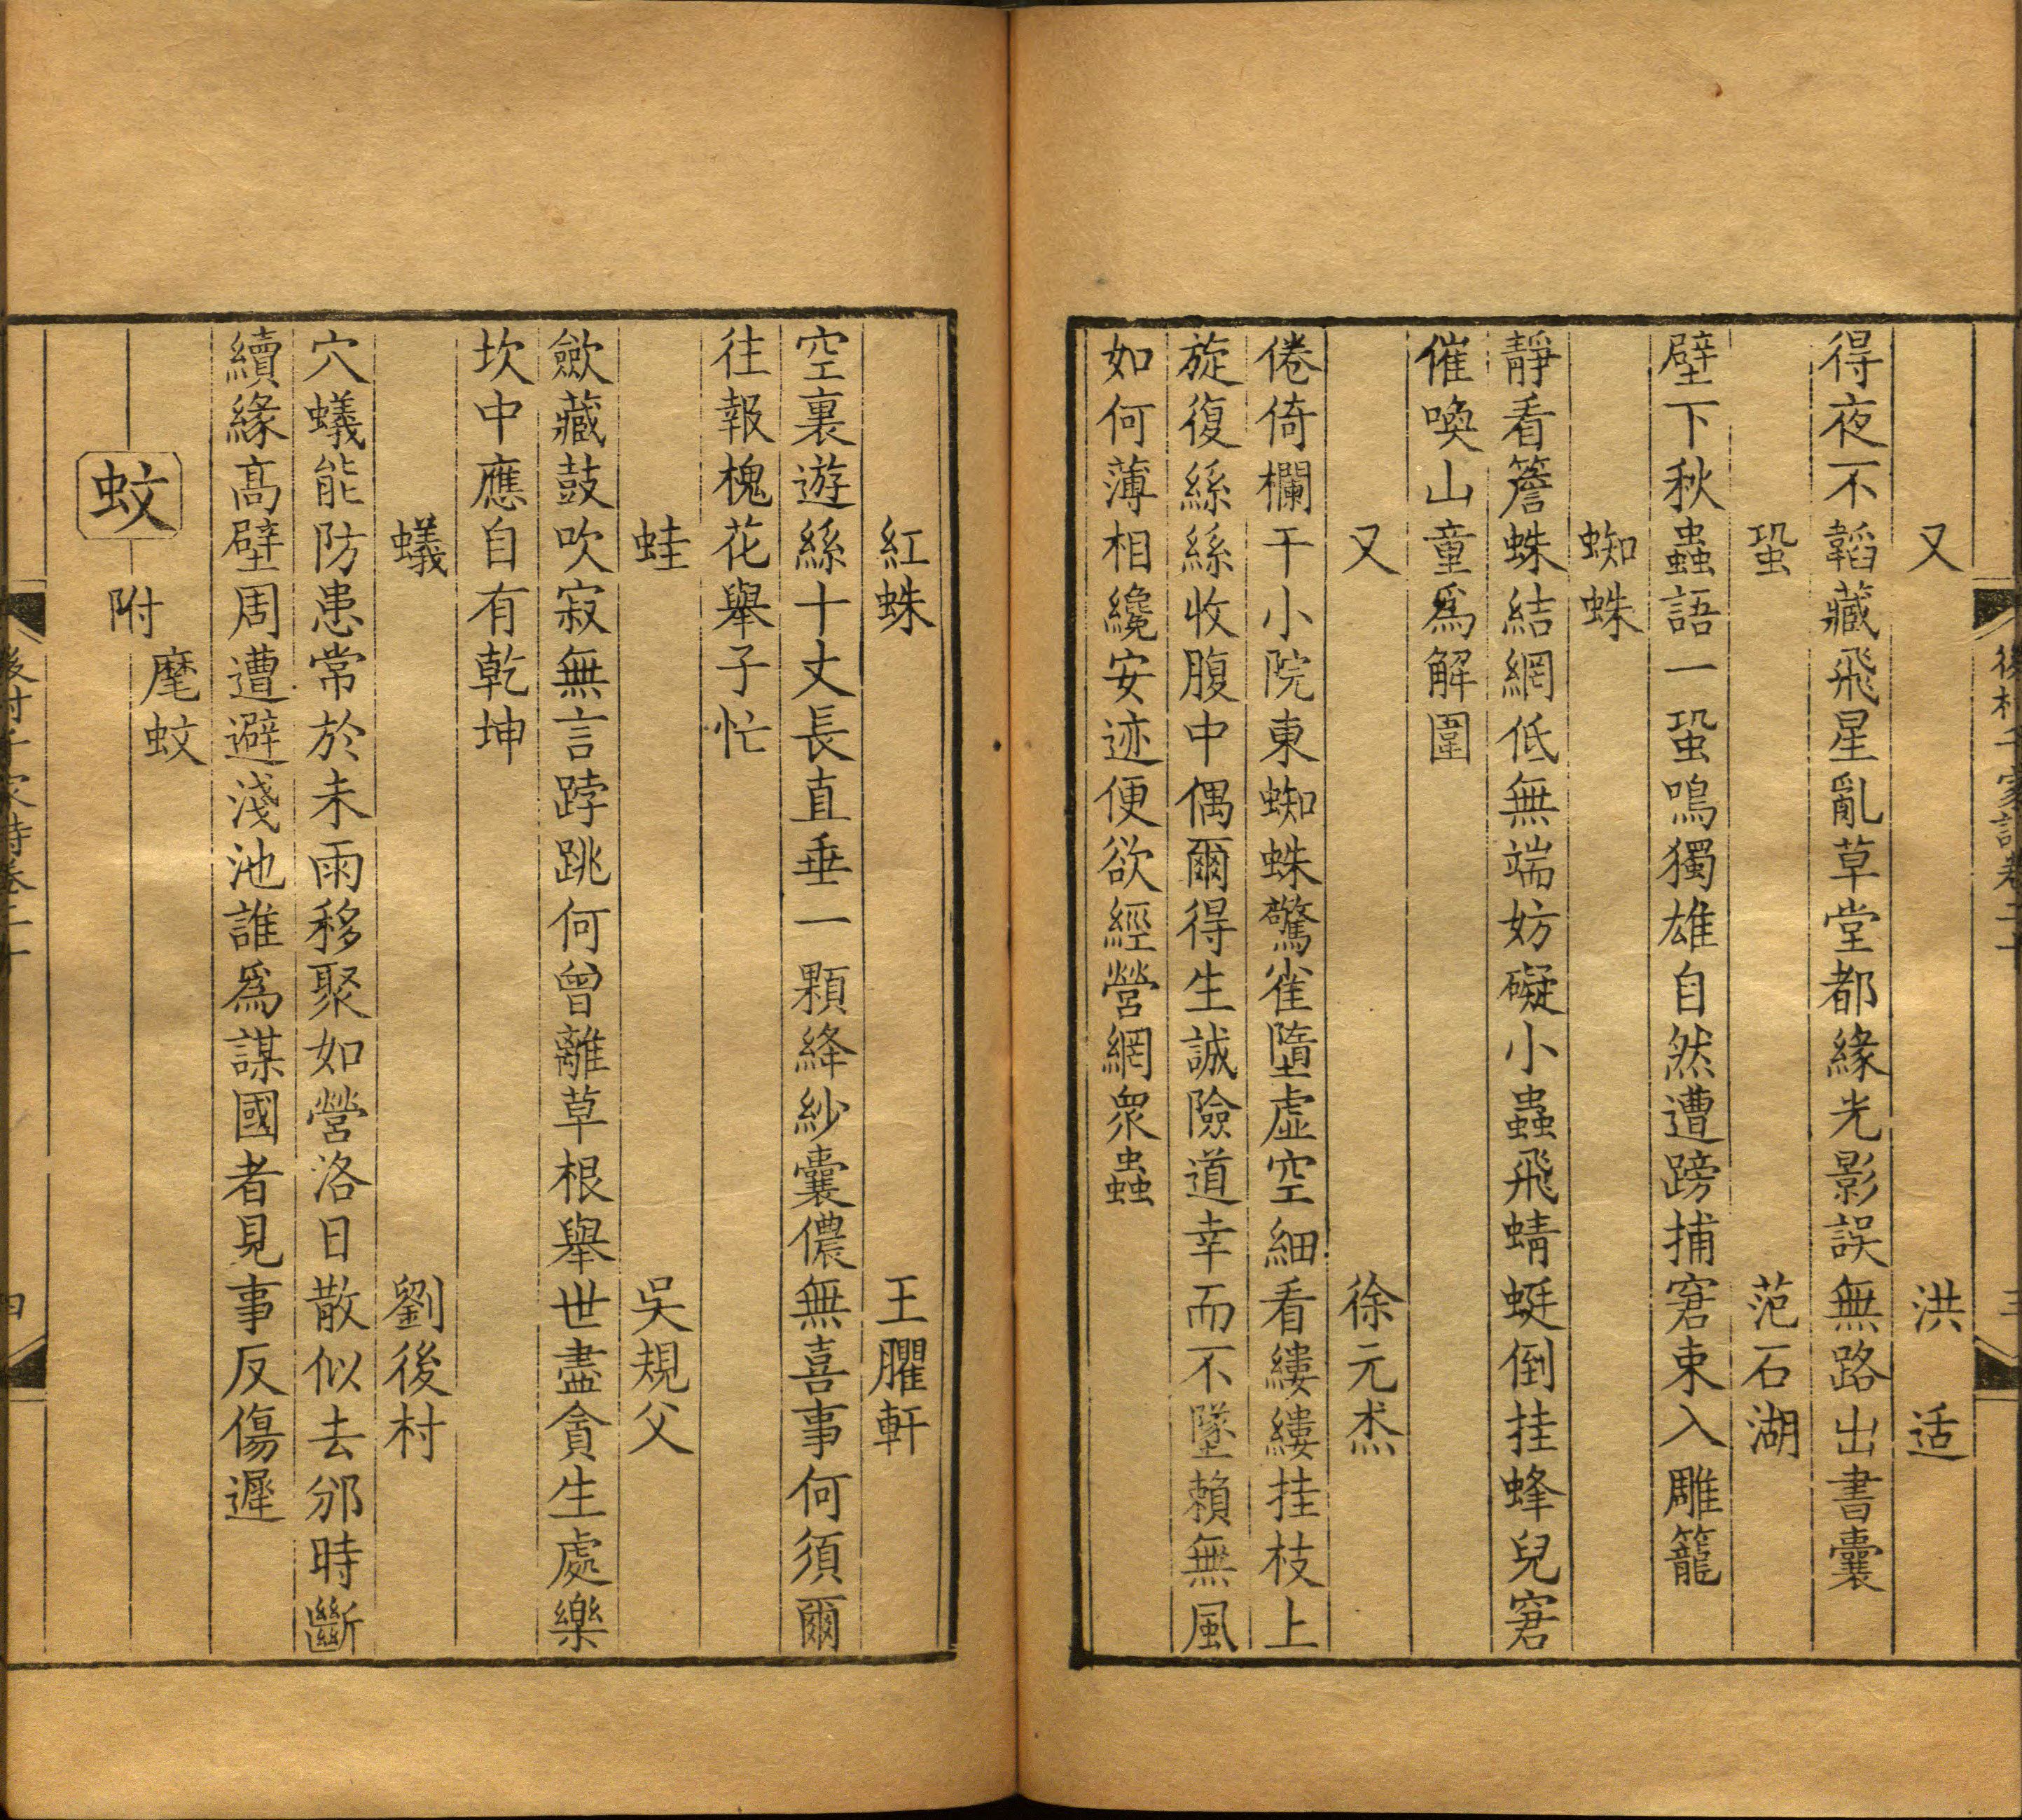 後村千家詩卷二十
又 洪适
得夜不韜藏飛星亂草堂都緣光影誤無路出書囊
蛩 范石湖
壁下秋蟲語一蛩鳴獨雄自然遭蹐捕窘束入雕籠
蜘蛛
靜看簷蛛結網低無端妨礙小蟲飛蜻蜓倒挂蜂兒窘
催喚山童爲解圍
又 徐元杰
倦倚欄干小院東蜘蛛驚雀墮虛空細看縷縷挂枝上
旋復絲絲收腹中偶爾得生誠險道幸而不墜賴無風
如何薄相纔安迹便欲經營網衆蟲
紅蛛 王臞軒
空裏遊絲十丈長直垂一顆絳紗囊儂無喜事何須爾
往報槐花舉子忙
蛙 吳規父
歛藏鼓吹寂無言跨跳何曾離草根舉世盡貪生處樂
坎中應自有乾坤
蟻 劉後村
穴蟻能防患常於未雨移聚如營洛日散似去邠時斷
續緣高壁周遭避淺池誰爲謀國者見事反傷遲
蚊 附
麾蚊
後村千家詩卷二十